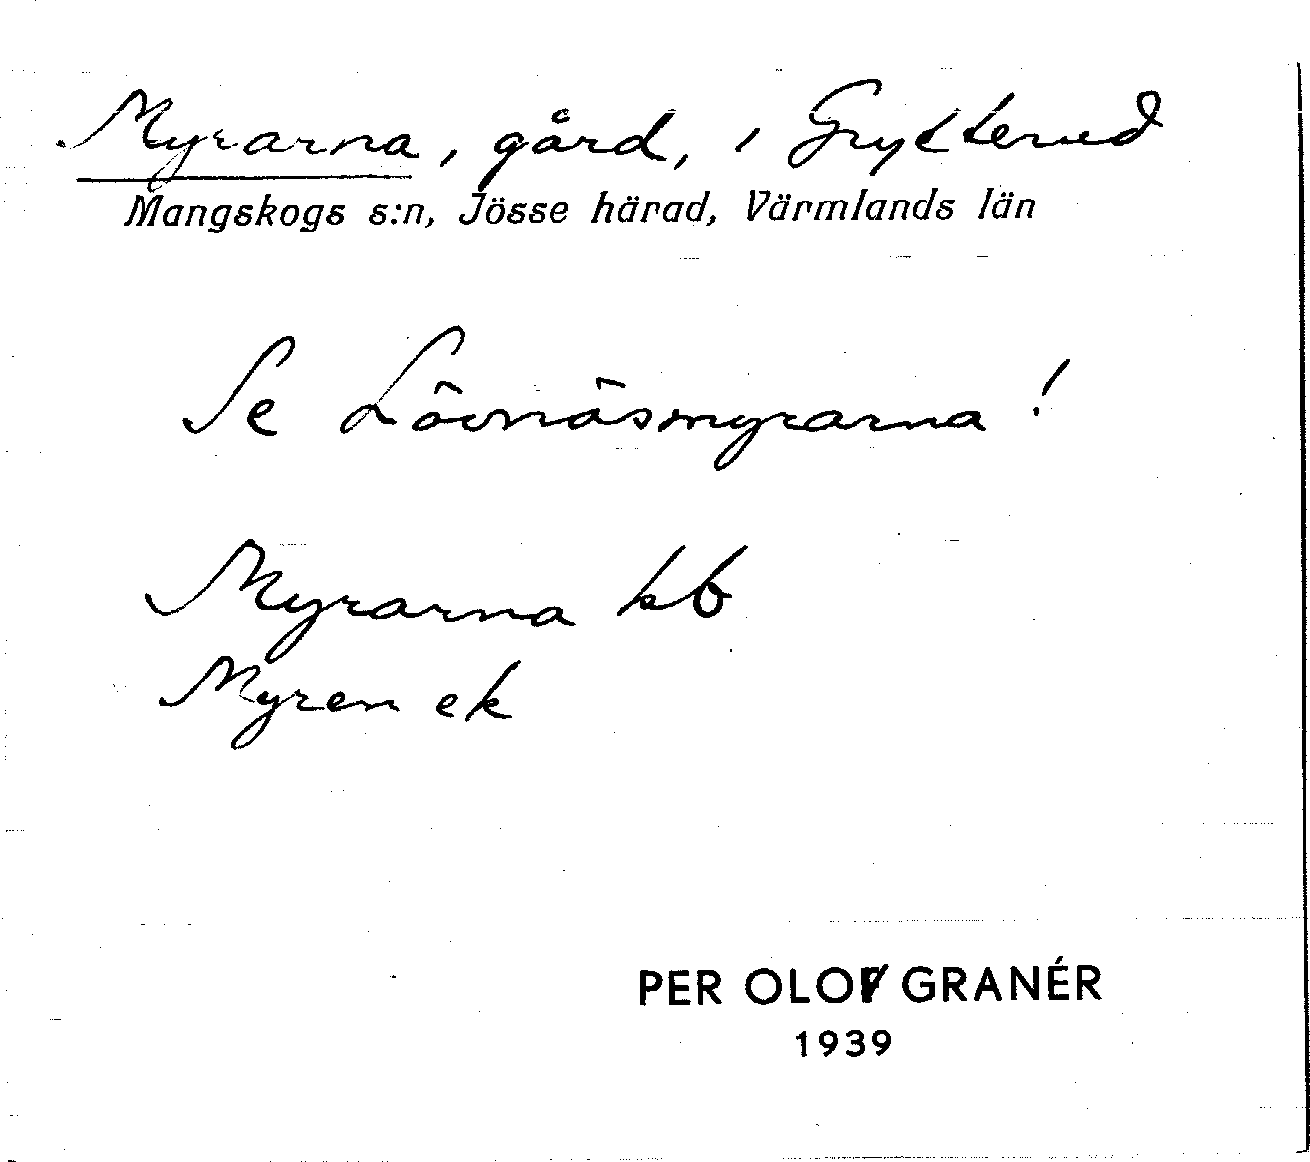 Myrarna, gård, i Grytterud
Mangskogs s:n, Jösse härad, Värmlands län
Se Lövnäsmyrarna!
Myrarna kb
Myren ek
PER OLOF GRANÉR
1939